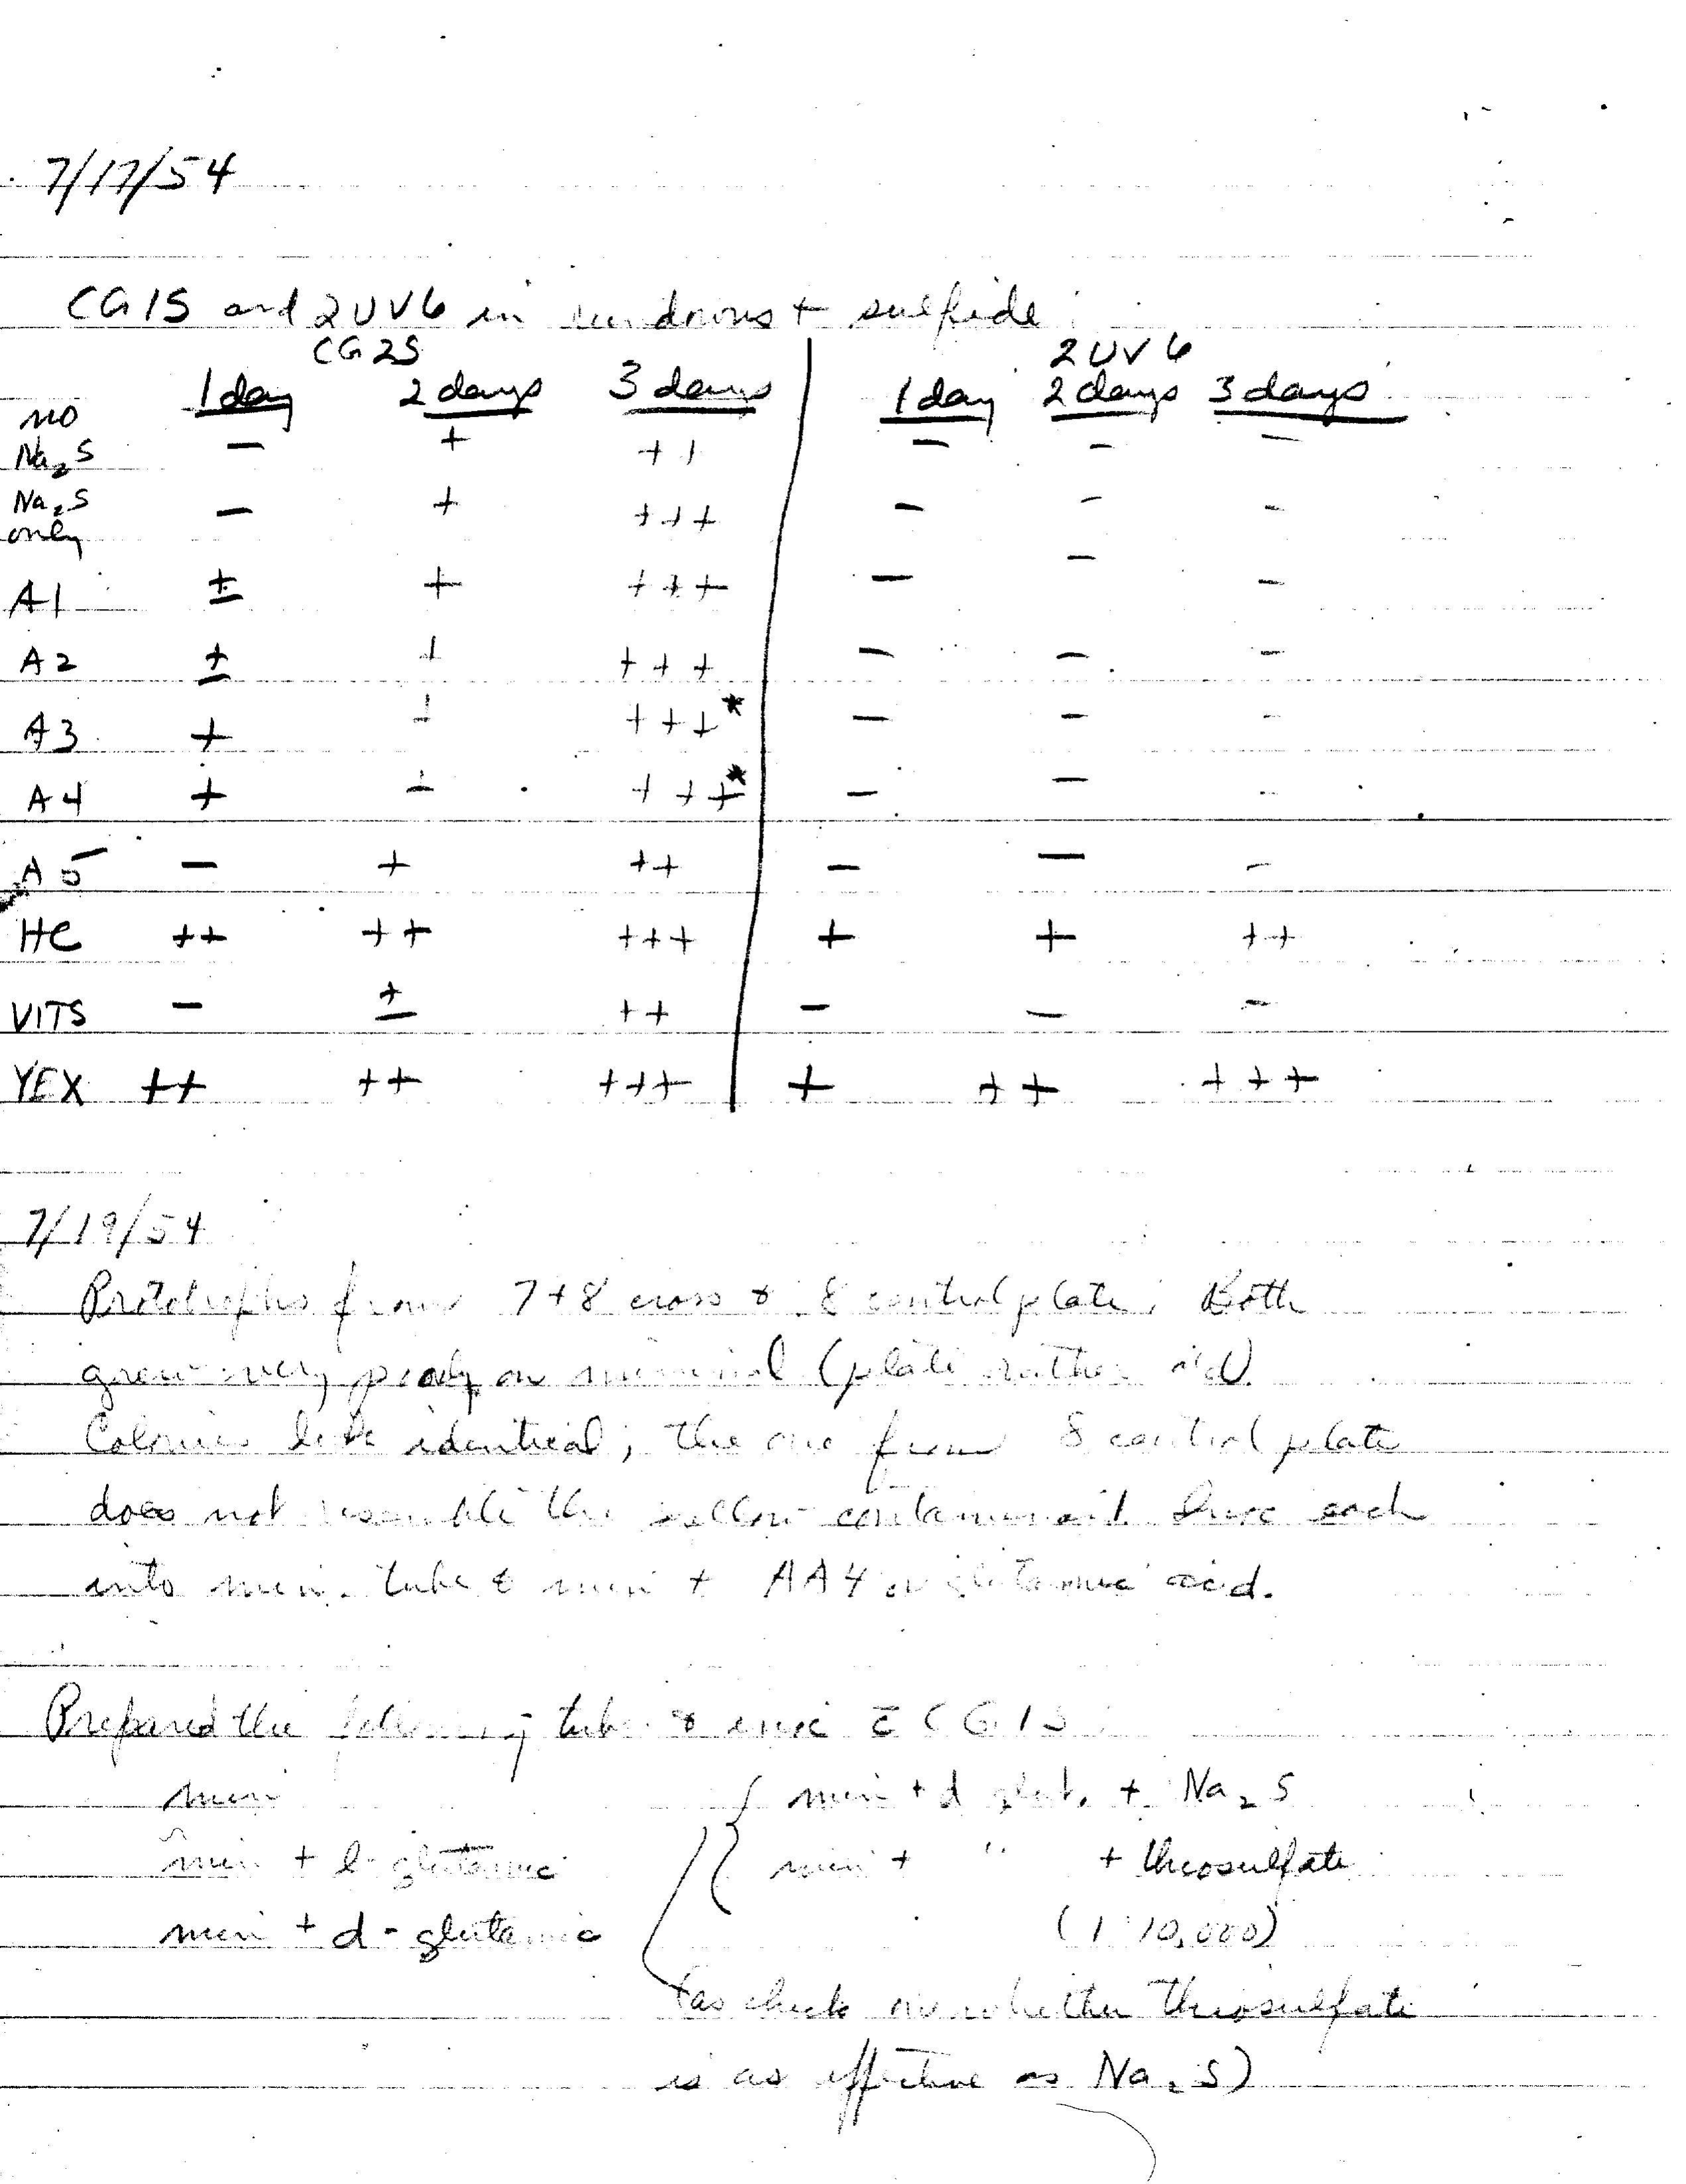 7/17/54
CG1S and 2UV6 in + sulfide
CG2S 2UV6
1 day 2 days 3 days 1 day 2 days 3 days
no
Na2S − + ++ − − −
Na2S
only − + +++ − − −
A1 ± + +++ − − −
A2 ± + +++ − − −
A3 + + +++* − − −
A4 + + +++* − − −
A5 − + ++ − − −
HC ++ ++ +++ + + ++
VITS − ± ++ − − −
YEX ++ ++ +++ + ++ +++
7/19/54
Prototrophs from 7+8 cross & 8 control plate. Both
grew very poorly on minimal (plate rather old).
Colonies look identical; the one from 8 control plate
does not resemble the yellow contaminant. each
into min. tube & min + AA4 or glutamic acid.
Prepared the following tubes & c̄ CG1S
min
min + l-glutamic
min + d-glutamic
min + d glut. + Na2S
min + " + thiosulfate
(1:10,000)
(as check on whether thiosulfate
is as effective as Na2S)